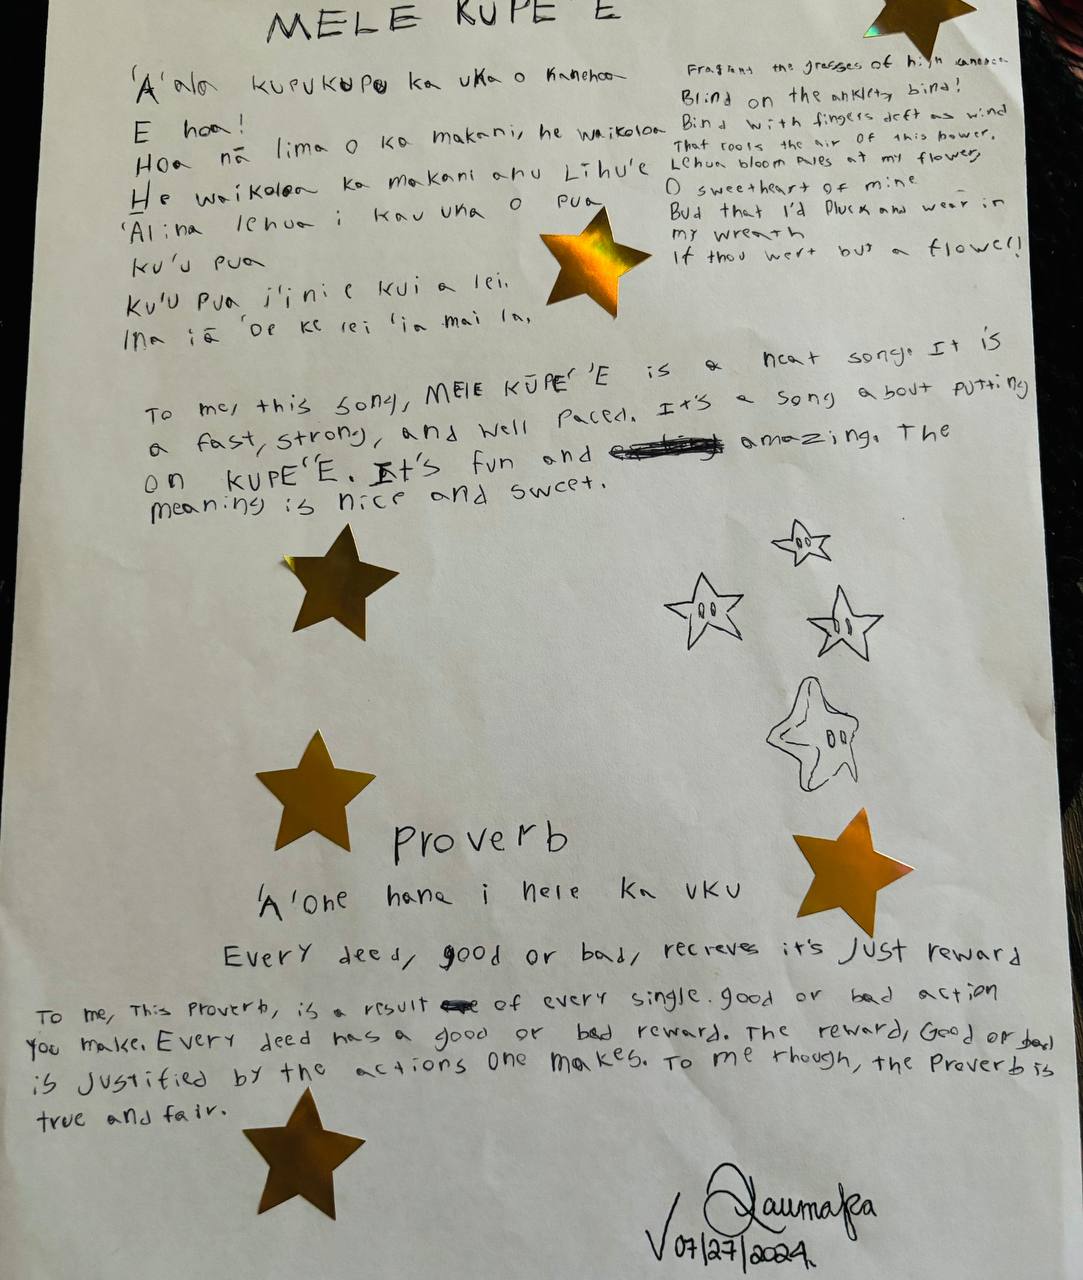 MELE KUPE'E
'A'ala kupukupu ka uka o Kanehoa
E hoa!
Hoa nā lima o ka makani, he Waikoloa
He waikoloa ka makani anu Līhu'e
'Ālina lehua i kau uka o pua
Ku'u pua
Ku'u pua i'ini e kui a lei.
Ina iā 'oe ke lei 'ia mai la.
Fragrant the gresses of high
Blind on the anklets, bind!
Bind with fingers deft as wind
That cools the air of this bower.
Lehua bloom pales at my flower,
O sweetheart of mine
Bud that I'd Pluck and wear in
my wreath
If thou wert but a flower!
To me, this song, MELE KŪPE'E is a neat song. It is
a fast, strong, and well paced. It's a song about putting
on KUPE'E. It's fun and amazing. The
meaning is nice and sweet.
Proverb
'A'ohe hana i nele ka uku
Every deed, good or bad, recieves it's just reward
To me, This Proverb, is a result of every single good or bad action
You make. Every deed has a good or bad reward. The reward, Good or bad
is justified by the actions one makes. To me though, the Proverb is
true and fair.
07/27/2024